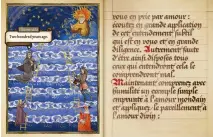 Two hundred years ago.
vous en prie par amour :
écoutez en grande application
de cet entendement subtil
qui est en vous et en grande
diligence. Autrement faute
d'être ainsi disposé tous
ceux qui entendront cela le
comprendront mal.
Maintenant comprenez avec
humilité un exemple simple
emprunté à l'amour mondain
et appliquez-le pareillement à
l'amour divin :